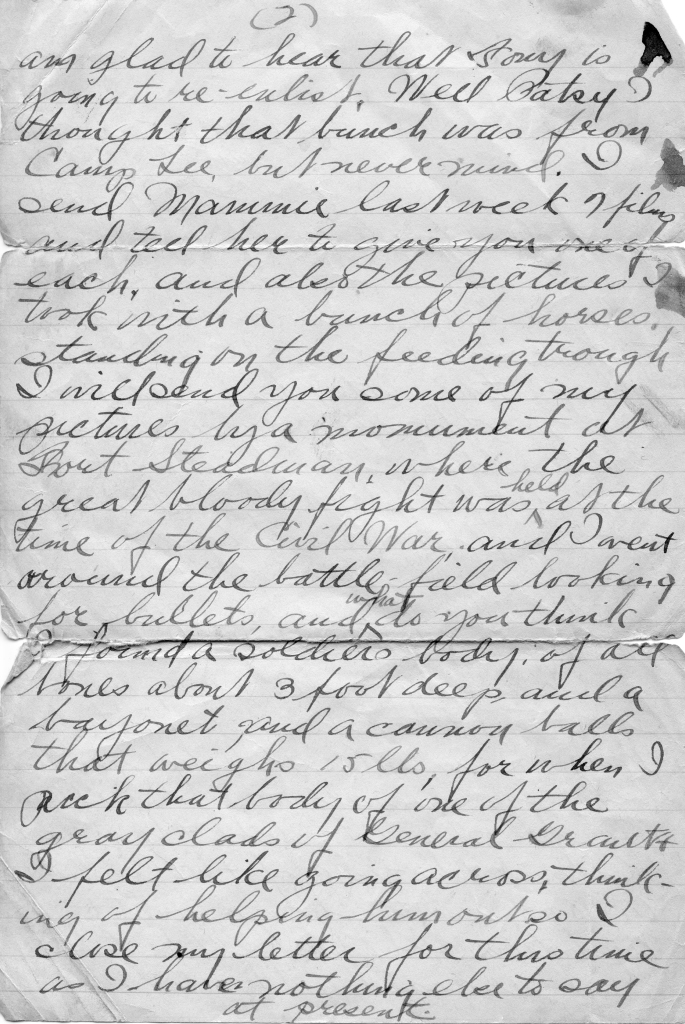 (2)
am glad to hear that Tony is
going to re-enlist. Well Patsy I
thought that bunch was from
Camp Lee, but never mind. I
send Mammie last week 7 films
and tell her to give you one of
each, and also the pictures I
took with a bunch of horses,
standing on the feeding trough
I will send you some of my
pictures by a momument at
Fort Steadman, where the
great bloody fight was held at the
time of the Civil War, and I went
around the battle field looking
for bullets, and what do you think
I found a soldiers body, of all
bones about 3 foot deep and a
bayonet, and a cannon balls
that weighs 15 lbs, for when I
pick that body of one of the
gray clads of General Grant
I felt like going across, think-
ing of helping him out so I
close my letter for this time
as I have nothing else to say
at present.